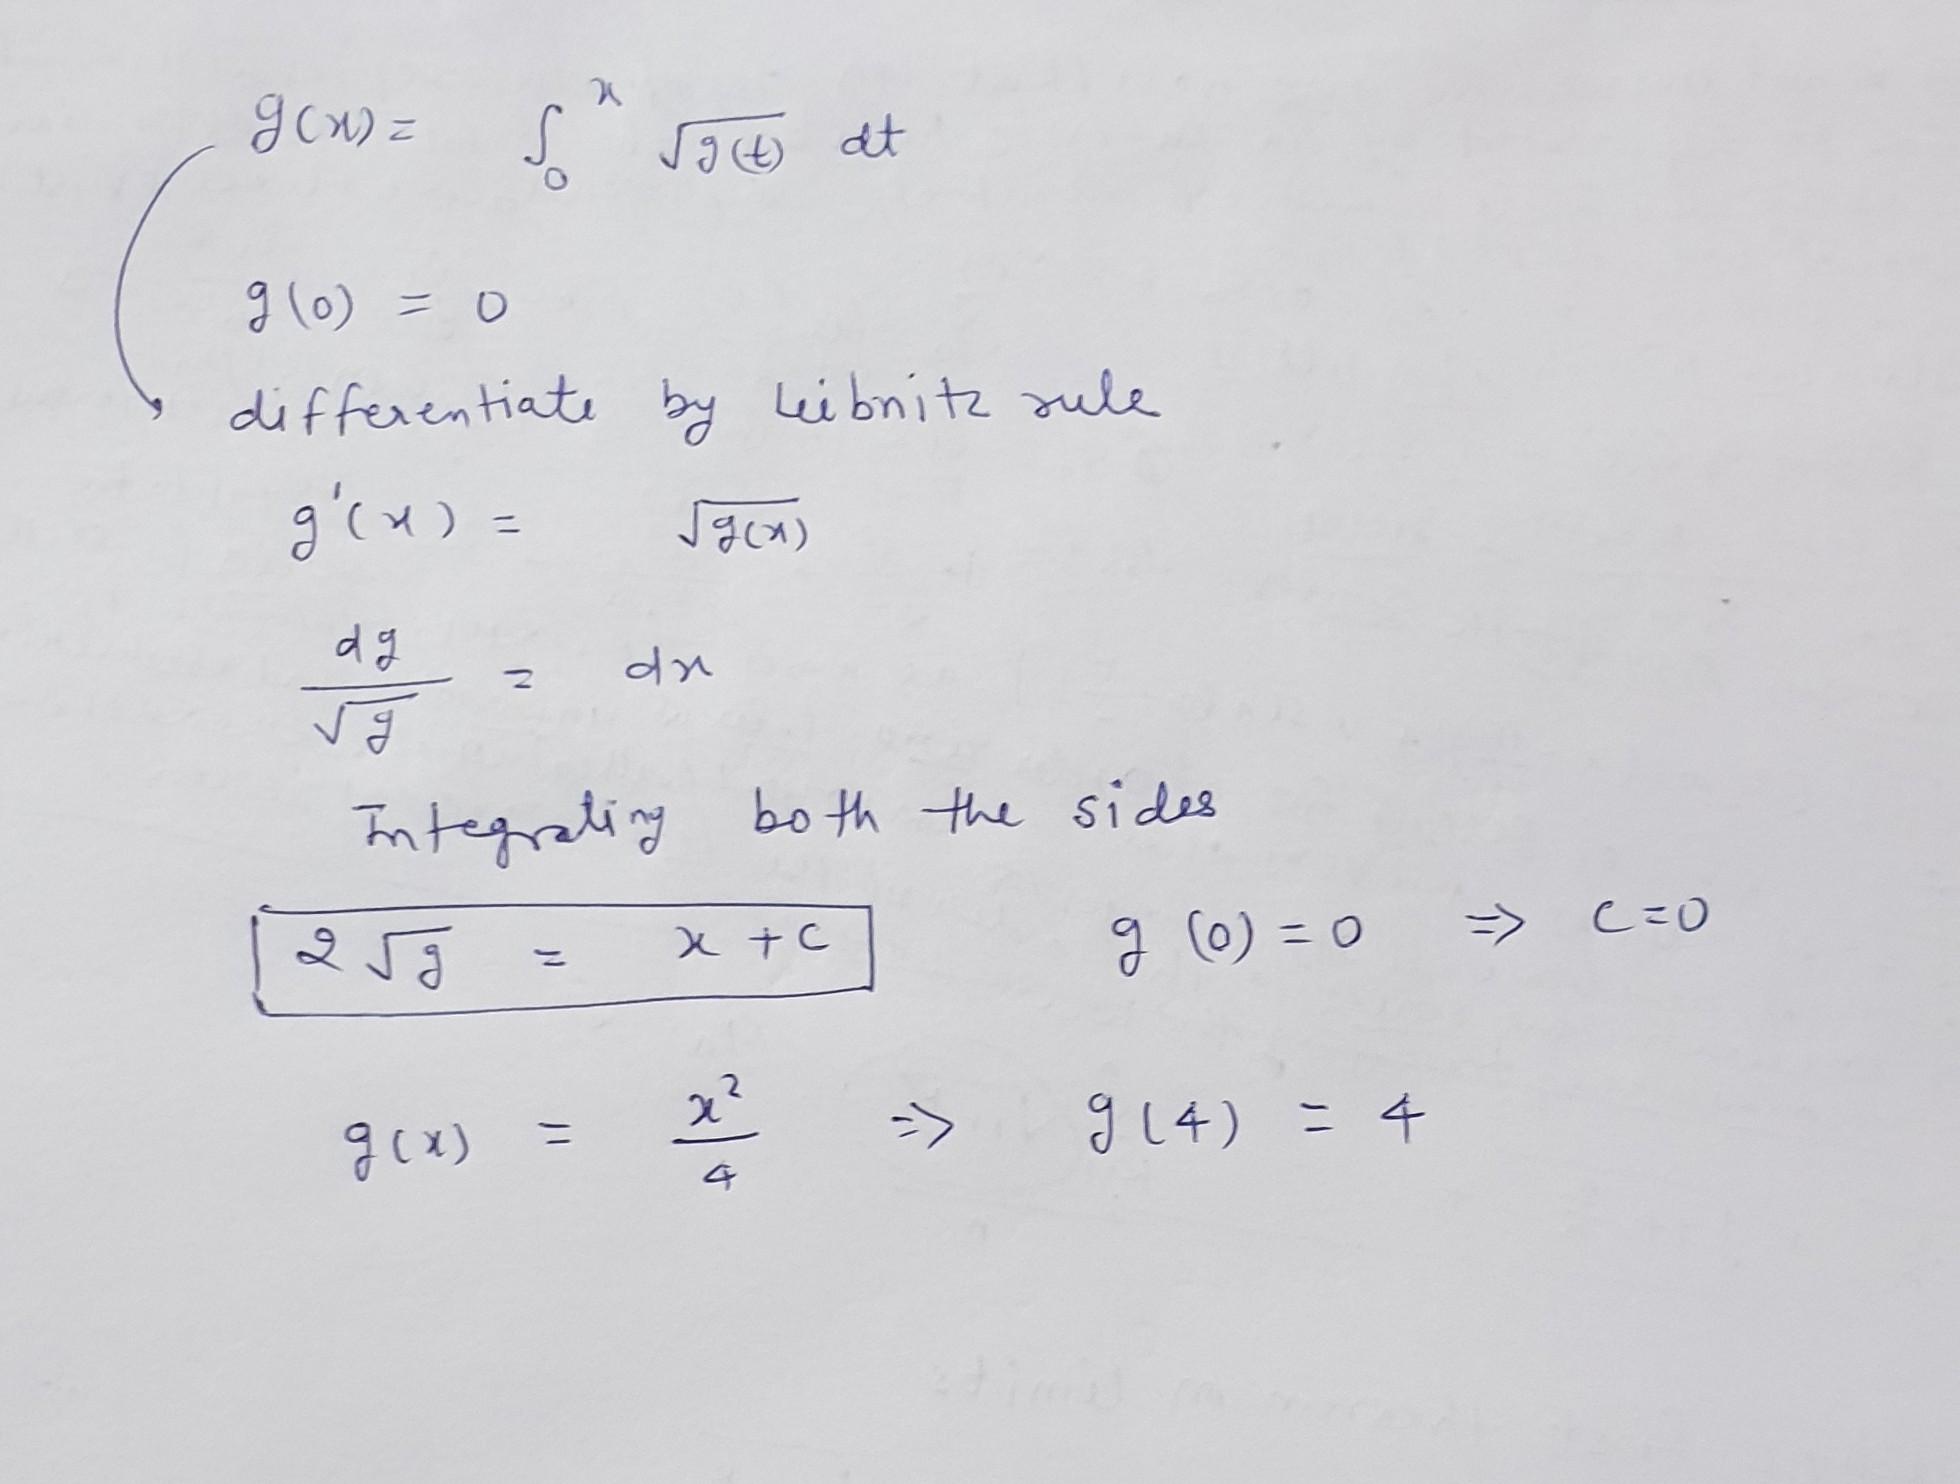 g(x) = ∫₀ˣ √g(t) dt
g(0) = 0
differentiate by Leibnitz rule
g'(x) = √g(x)
dg/√g = dx
Integrating both the sides
2√g = x + c g(0) = 0 ⇒ c=0
g(x) = x²/4 ⇒ g(4) = 4